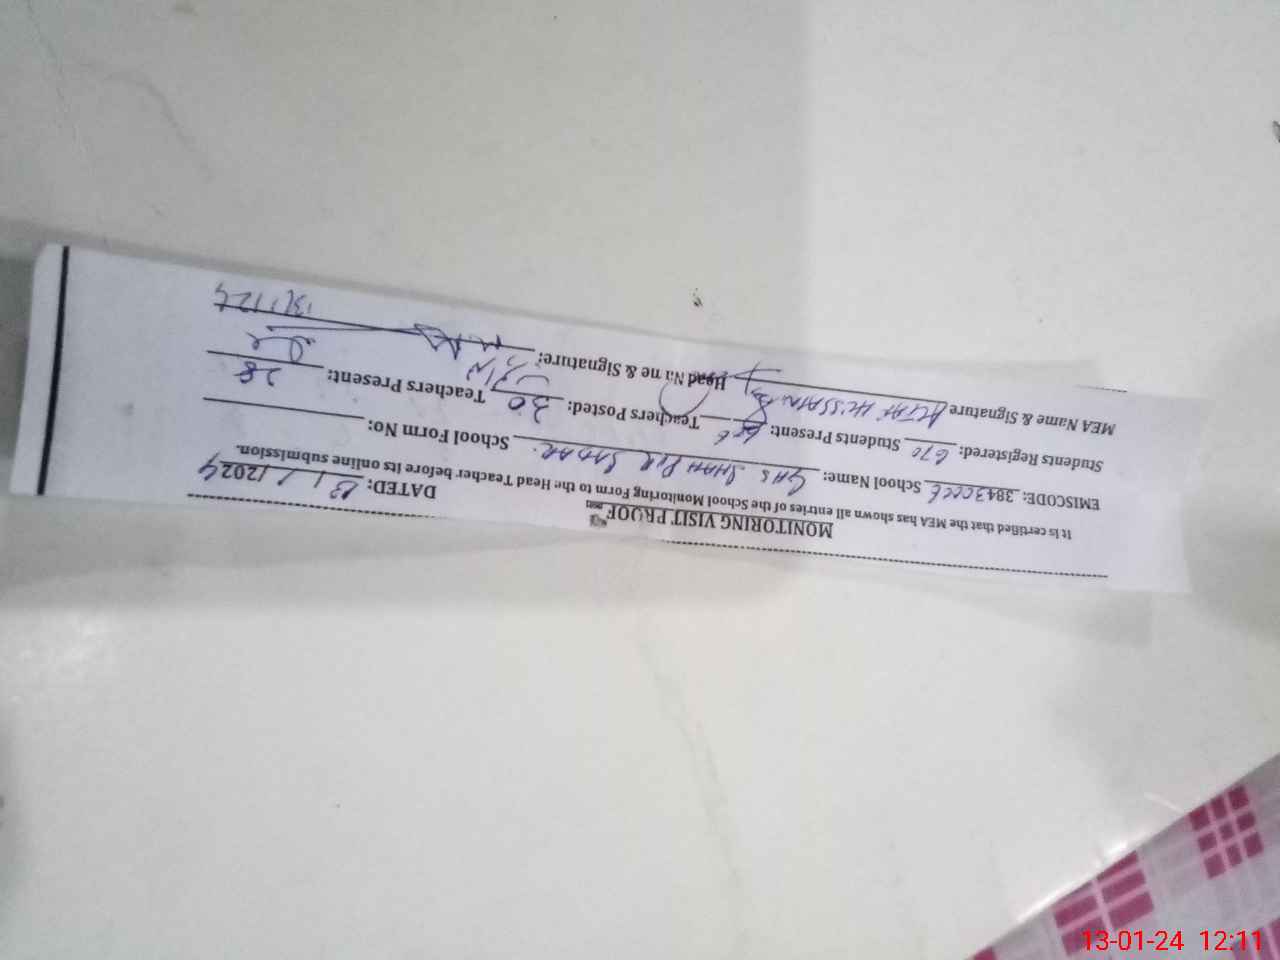 MONITORING VISIT PROOF
DATED: 13/1/2024
It is certified that the MEA has shown all entries of the School Monitoring Form to the Head Teacher before its online submission.
EMISCODE: 3843 School Name: GHS SHAH PUR SADAR. School Form No:
Students Registered: 670 Students Present: Teachers Posted: 30 Teachers Present: 28
MEA Name & Signature ALTAF HUSSAIN Head Na ne & Signature:
13/1/24
13-01-24 12:11